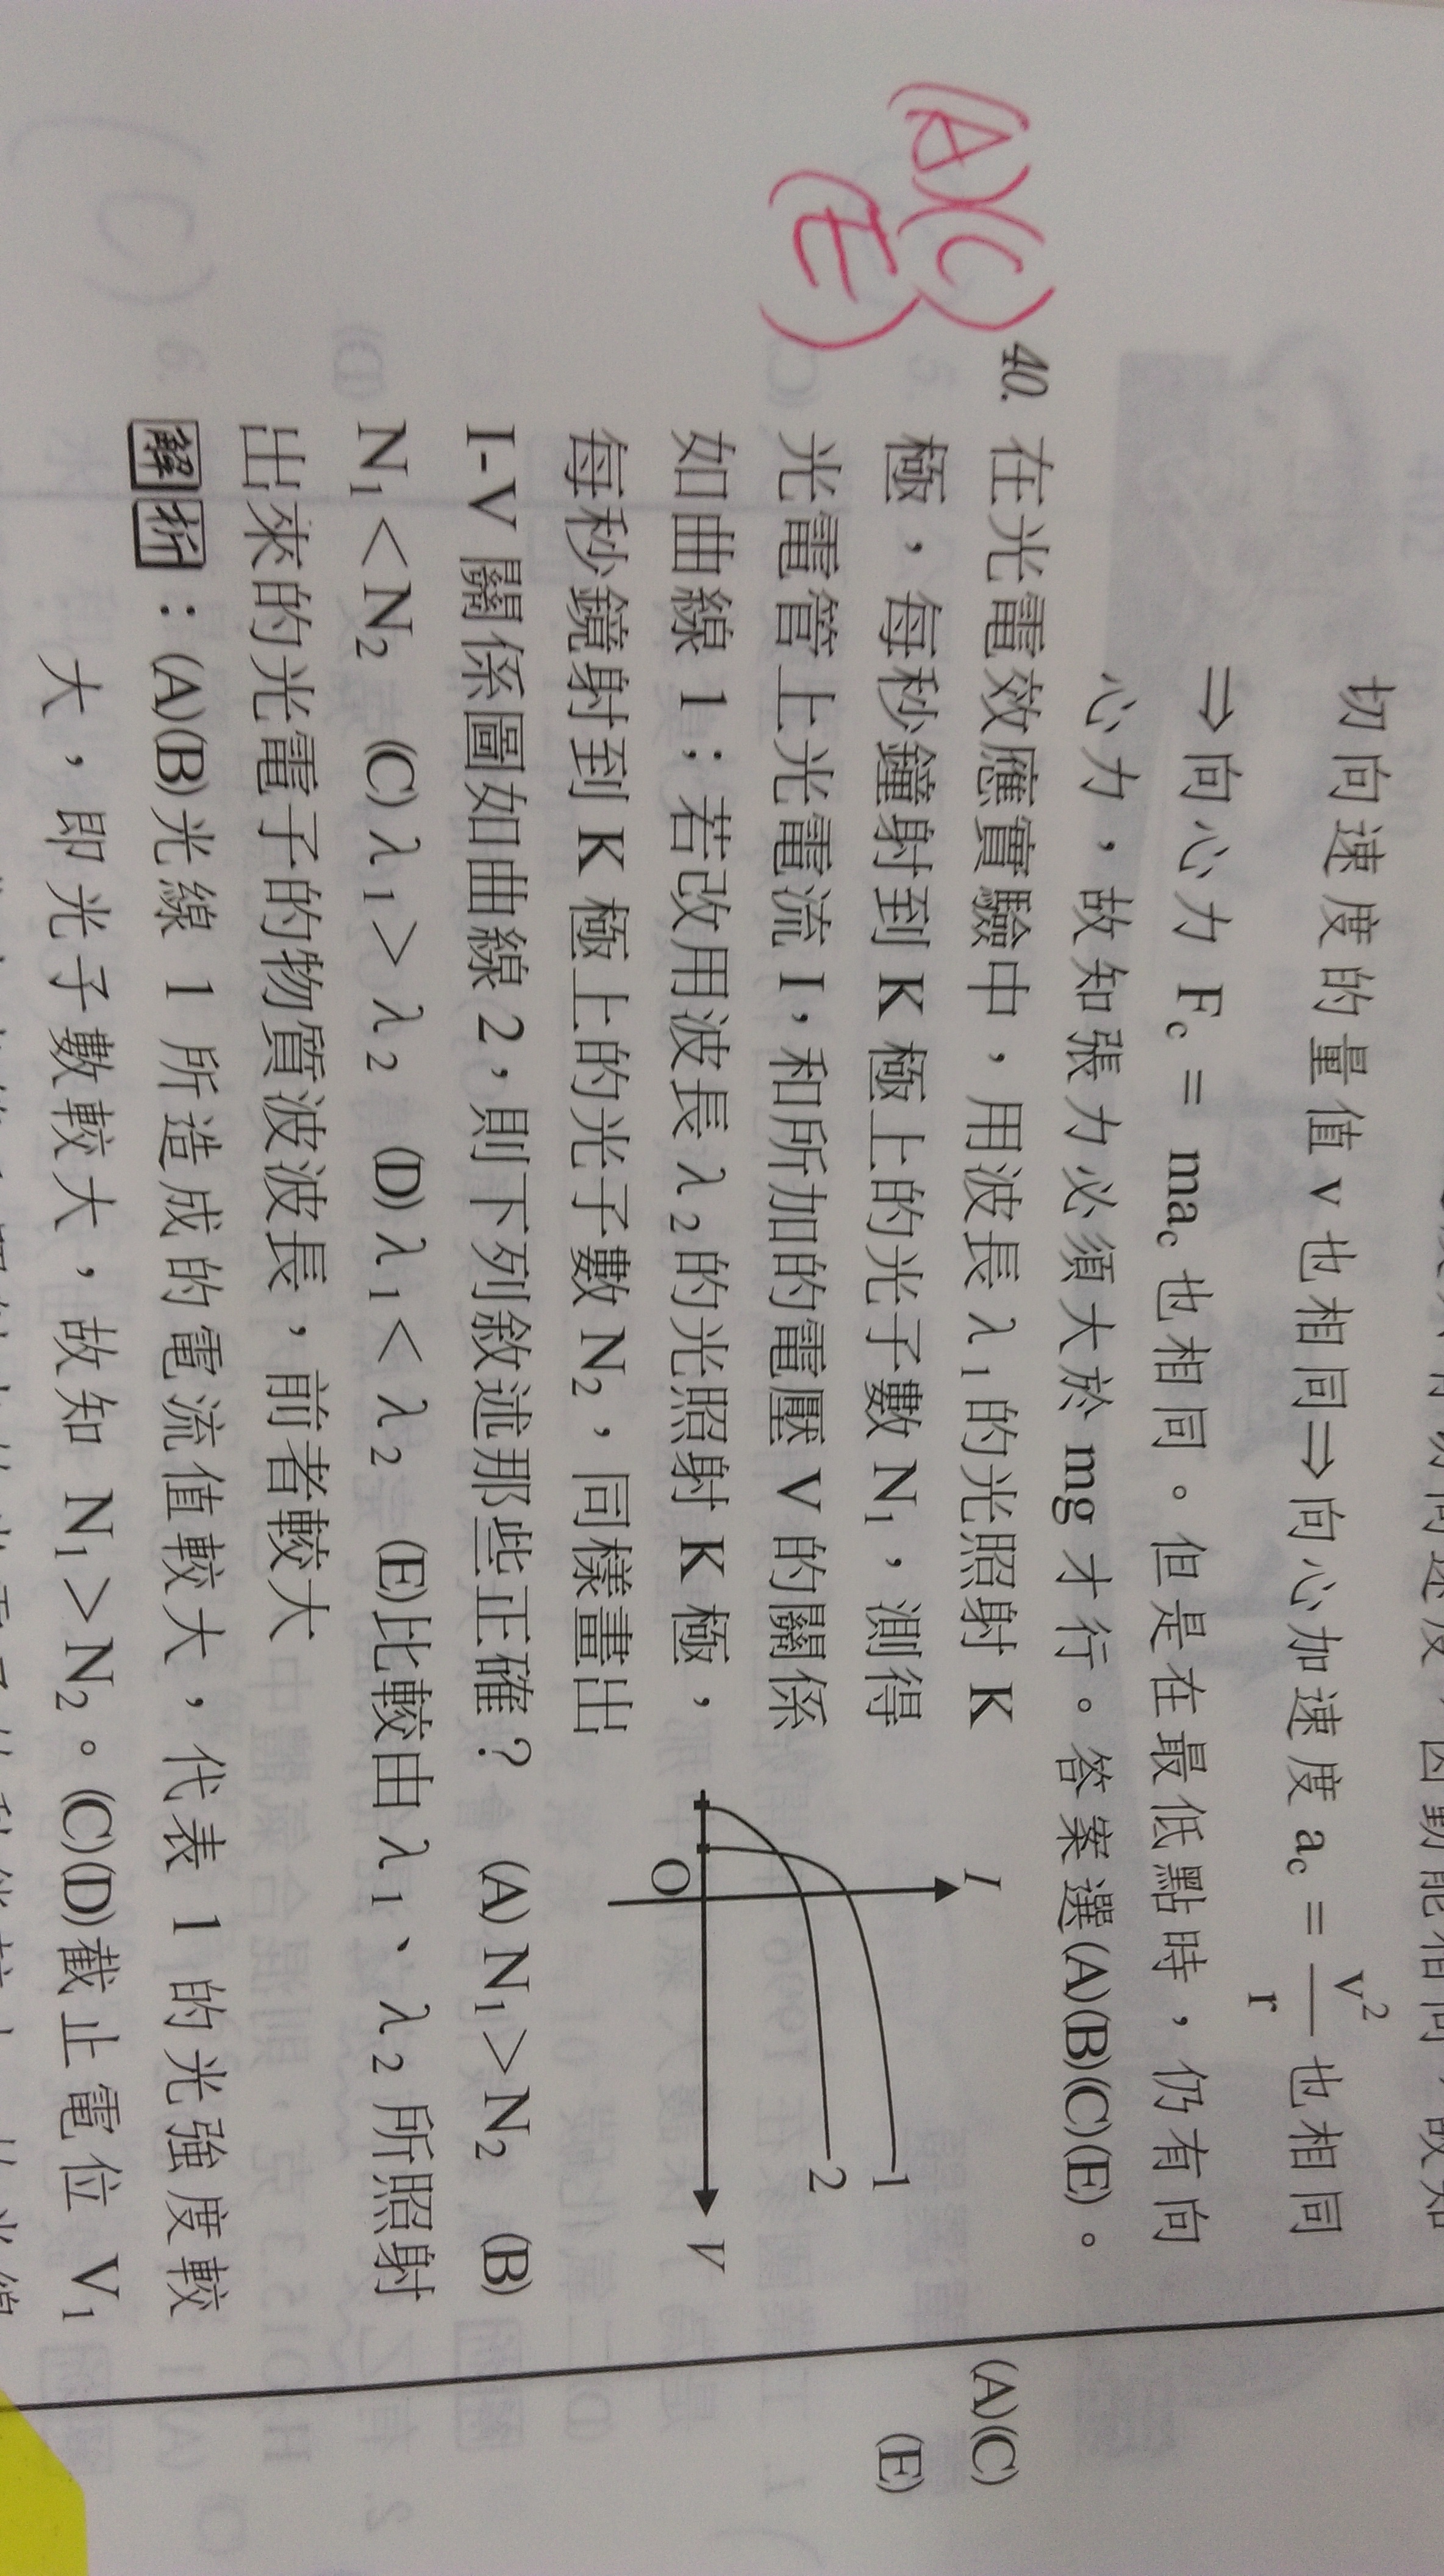 切向速度的量值 v 也相同⇒向心加速度 a_c = v²/r 也相同
⇒向心力 F_c = ma_c 也相同。但是在最低點時，仍有向
心力，故知張力必須大於 mg 才行。答案選(A)(B)(C)(E)。
(A)(C)
(E)
40. 在光電效應實驗中，用波長 λ₁ 的光照射 K
極，每秒鐘射到 K 極上的光子數 N₁，測得
光電管上光電流 I，和所加的電壓 V 的關係
如曲線 1；若改用波長 λ₂ 的光照射 K 極，
每秒鏡射到 K 極上的光子數 N₂，同樣畫出
I-V 關係圖如曲線 2，則下列敘述那些正確？ (A) N₁＞N₂ (B)
N₁＜N₂ (C) λ₁＞λ₂ (D) λ₁＜λ₂ (E)比較由 λ₁、λ₂ 所照射
出來的光電子的物質波波長，前者較大
I
1
2
O
V
(A)(C)
(E)
解析：(A)(B)光線 1 所造成的電流值較大，代表 1 的光強度較
大，即光子數較大，故知 N₁＞N₂。(C)(D)截止電位 V₁